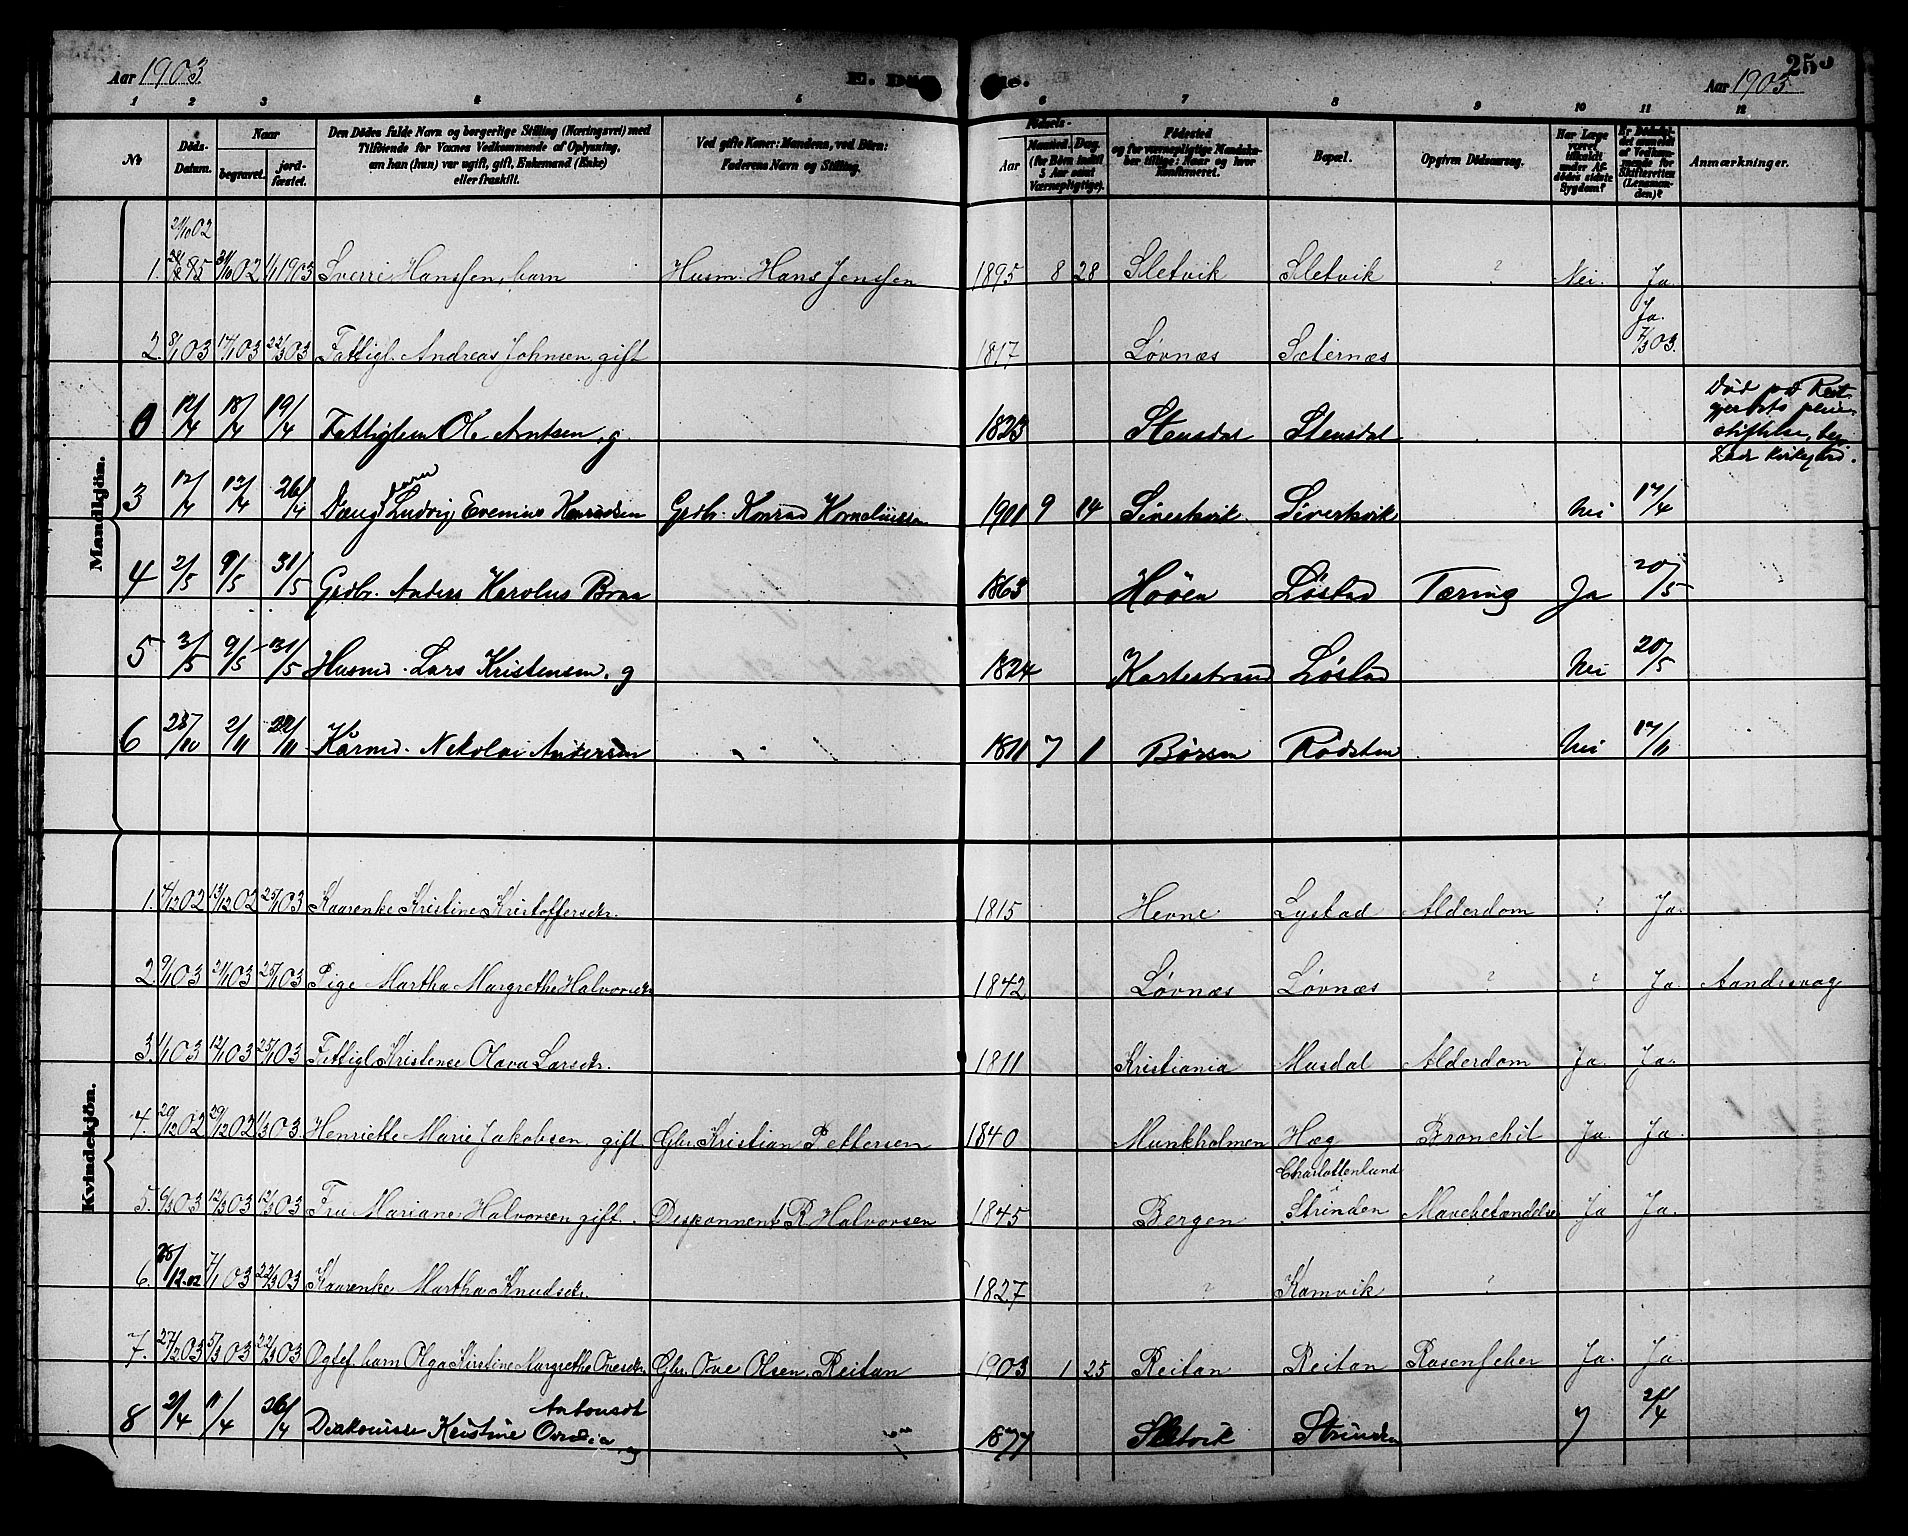 Aar 1903. E. Dö de. Aar 1903. 25
1 2 3 4 5 6 7 8 9 10 11 12
No
Döds-Datum.
Naar
begravet.
jordfæstet.
Den Dödes fulde Navn og borgerlige Stilling (Næringsvei) med
Tilföiende for Voxnes Vedkommende af Oplysning,
om han (hun) var ugift, gift, Enkemand (Enke)
eller fraskilt.
Ved gifte Koner: Mandens, ved Börn:
Faderens Navn og Stilling.
Födsels-
Aar
Maaned. Dag.
(for Börn indtil
5 Aar samt
Værnepligtige).
Födested
og for værnepligtige Mandskaber tillige: Naar og hvor
konfirmeret.
Bopæl.
Opgiven Dödsaarsag.
Har Læge
været
tilkaldt
under Afdödes sidste
Sygdom?
Er Dödsfaldet anmeldt
af Vedkommende for
Skifteretten
(Lensmanden)?
Anmærkninger.
Mandkjön.
1. 21/10 02 24/10 02 1/1 1903 Sverre Hanssen, barn Husm. Hans Jenssen 1895 8 28 Sletvik Sletvik ? Nei. Ja.
2. 8/1 03 17/1 03 22/3 03 Fattigl. Andreas Johnsen, gift 1817 Løvnæs Sæternæs Ja. 7/3 03.
0 12/4 18/4 19/4 Fattiglem Ole Arntsen, g 1823 Stensdal Stensdal Død på Reitgjerdets pleiestiftelse, beg. Lade kirkegård.
3 12/4 26/4 Ludvig Evenius Konradsen Grdbr. Konrad Korneliussen 1901 9 14 Sivertsvik Sivertsvik Nei 17/4
4 2/5 9/5 31/5 Grdbr. Anders Karolus Braa 1863 Høöen Løstad Tæring Ja 20/5
5 3/5 9/5 31/5 Husmd. Lars Kristensen, g 1824 Løstad Nei 20/5
6 2/11 22/11 Kårmd. Nikolai Andersen 1811 7 1 Børsen Rødsten Nei 17/11
Kvindekjön.
1. 4/12 02 13/12 02 25/1 03 Kaarenke Kristine Kristoffersdtr. 1815 Hevne Lystad Alderdom ? Ja.
2. 9/1 03 21/1 03 25/1 03 Pige Martha Margrethe Halvorsdtr. 1842 Løvnæs Løvnæs ? ? Ja. Aandssvag
3. 1/1 03 12/1 03 25/1 03 Fattigl. Kristense Olava Larsdtr. 1811 Kristiania Musdal Alderdom Ja. Ja.
4. 20/12 02 29/12 02 1/3 03. Henriette Marie Jakobsen, gift Gbr. Kristian Pettersen 1840 Munkholmen Hæg Bronchit Ja. Ja.
5. 6/3 03 12/3 03 12/3 03 Fru Mariane Halvorsen gift. Disponnent R. Halvorsen 1845 Bergen Charlottenlund Strinden Mavebetændelse Ja Ja.
6. 28/12.02 7/1 03 22/3 03 Kaarenke Martha Knudsdtr. 1827 ? Kamvik ?
7. 27/2 03 5/3 03 22/3 03 barn Olga Kristine Margrethe Ovesdtr. Gbr. Ove Olsen, Reitan 1903 1 25 Reitan Reitan Rosenfeber Ja. Ja.
8 2/4 11/4 26/4 Diakonisse Kristine Ovedia Antonsdt ug 1877 Sletvik Strinden J 21/4